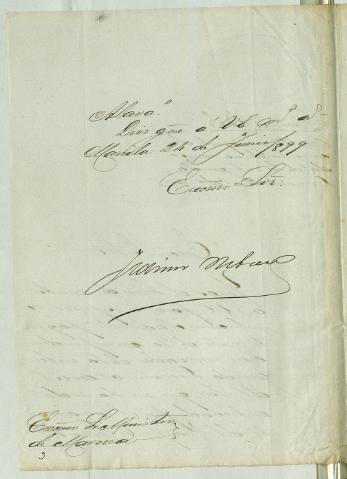 Alava."
Dios gue á V.E. ms as
Manila 24 de Junio 1899
Excmo Sr:
Excmo Sr Ministro
de Marina
3